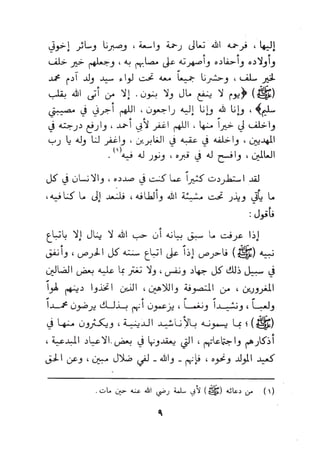 إليها، فرحمه الله تعالى رحمة واسعة، وصبرنا وسائر إخوتي
وأولاده وأحفاده وأصهرته على مصابهم به، وجعلهم خير خلف
لخير سلف، وحشرنا جميعاً معه تحت لواء سيد ولد آدم محمد
(ﷺ) ﴿يوم لا ينفع مال ولا بنون. إلا من أتى الله بقلب
سليم﴾، وإنا لله وإنا إليه راجعون، اللهم أجرني في مصيبتي
واخلف لي خيراً منها. اللهم اغفر لأبي أحمد، وارفع درجته في
المهديين، واخلفه في عقبه في الغابرين، واغفر لنا وله يا رب
العالمين، وافسح له في قبره، ونور له فيه(١).
لقد استطردت كثيراً عما كنت في صدده، والانسان في كل
ما يأتي ويذر تحت مشيئة الله وألطافه، فلنعد إلى ما كنا فيه،
فأقول:
إذا عرفت ما سبق بيانه أن حب الله لا ينال إلا باتباع
نبيه (ﷺ) فاحرص إذاً على اتباع سنته كل الحرص، وأنفق
في سبيل ذلك كل جهاد ونفس، ولا تغتر بما عليه بعض الضالين
المغرورين، من المتصوفة واللاهين، الذين اتخذوا دينهم لهواً
ولعباً، ونشيداً ونغماً، يزعمون أنهم بذلك يرضون محمداً
(ﷺ)؛ بما يسمونه بالأناشيد الدينية، ويكثرون منها في
أذكارهم واجتماعاتهم، التي يعقدونها في بعض الاعياد المبدعية،
كعيد المولد ونحوه، فإنهم - والله - لفي ضلال مبين، وعن الحق
(١) من دعائه (ﷺ) لأبي سلمة رضي الله عنه حين مات.
٩